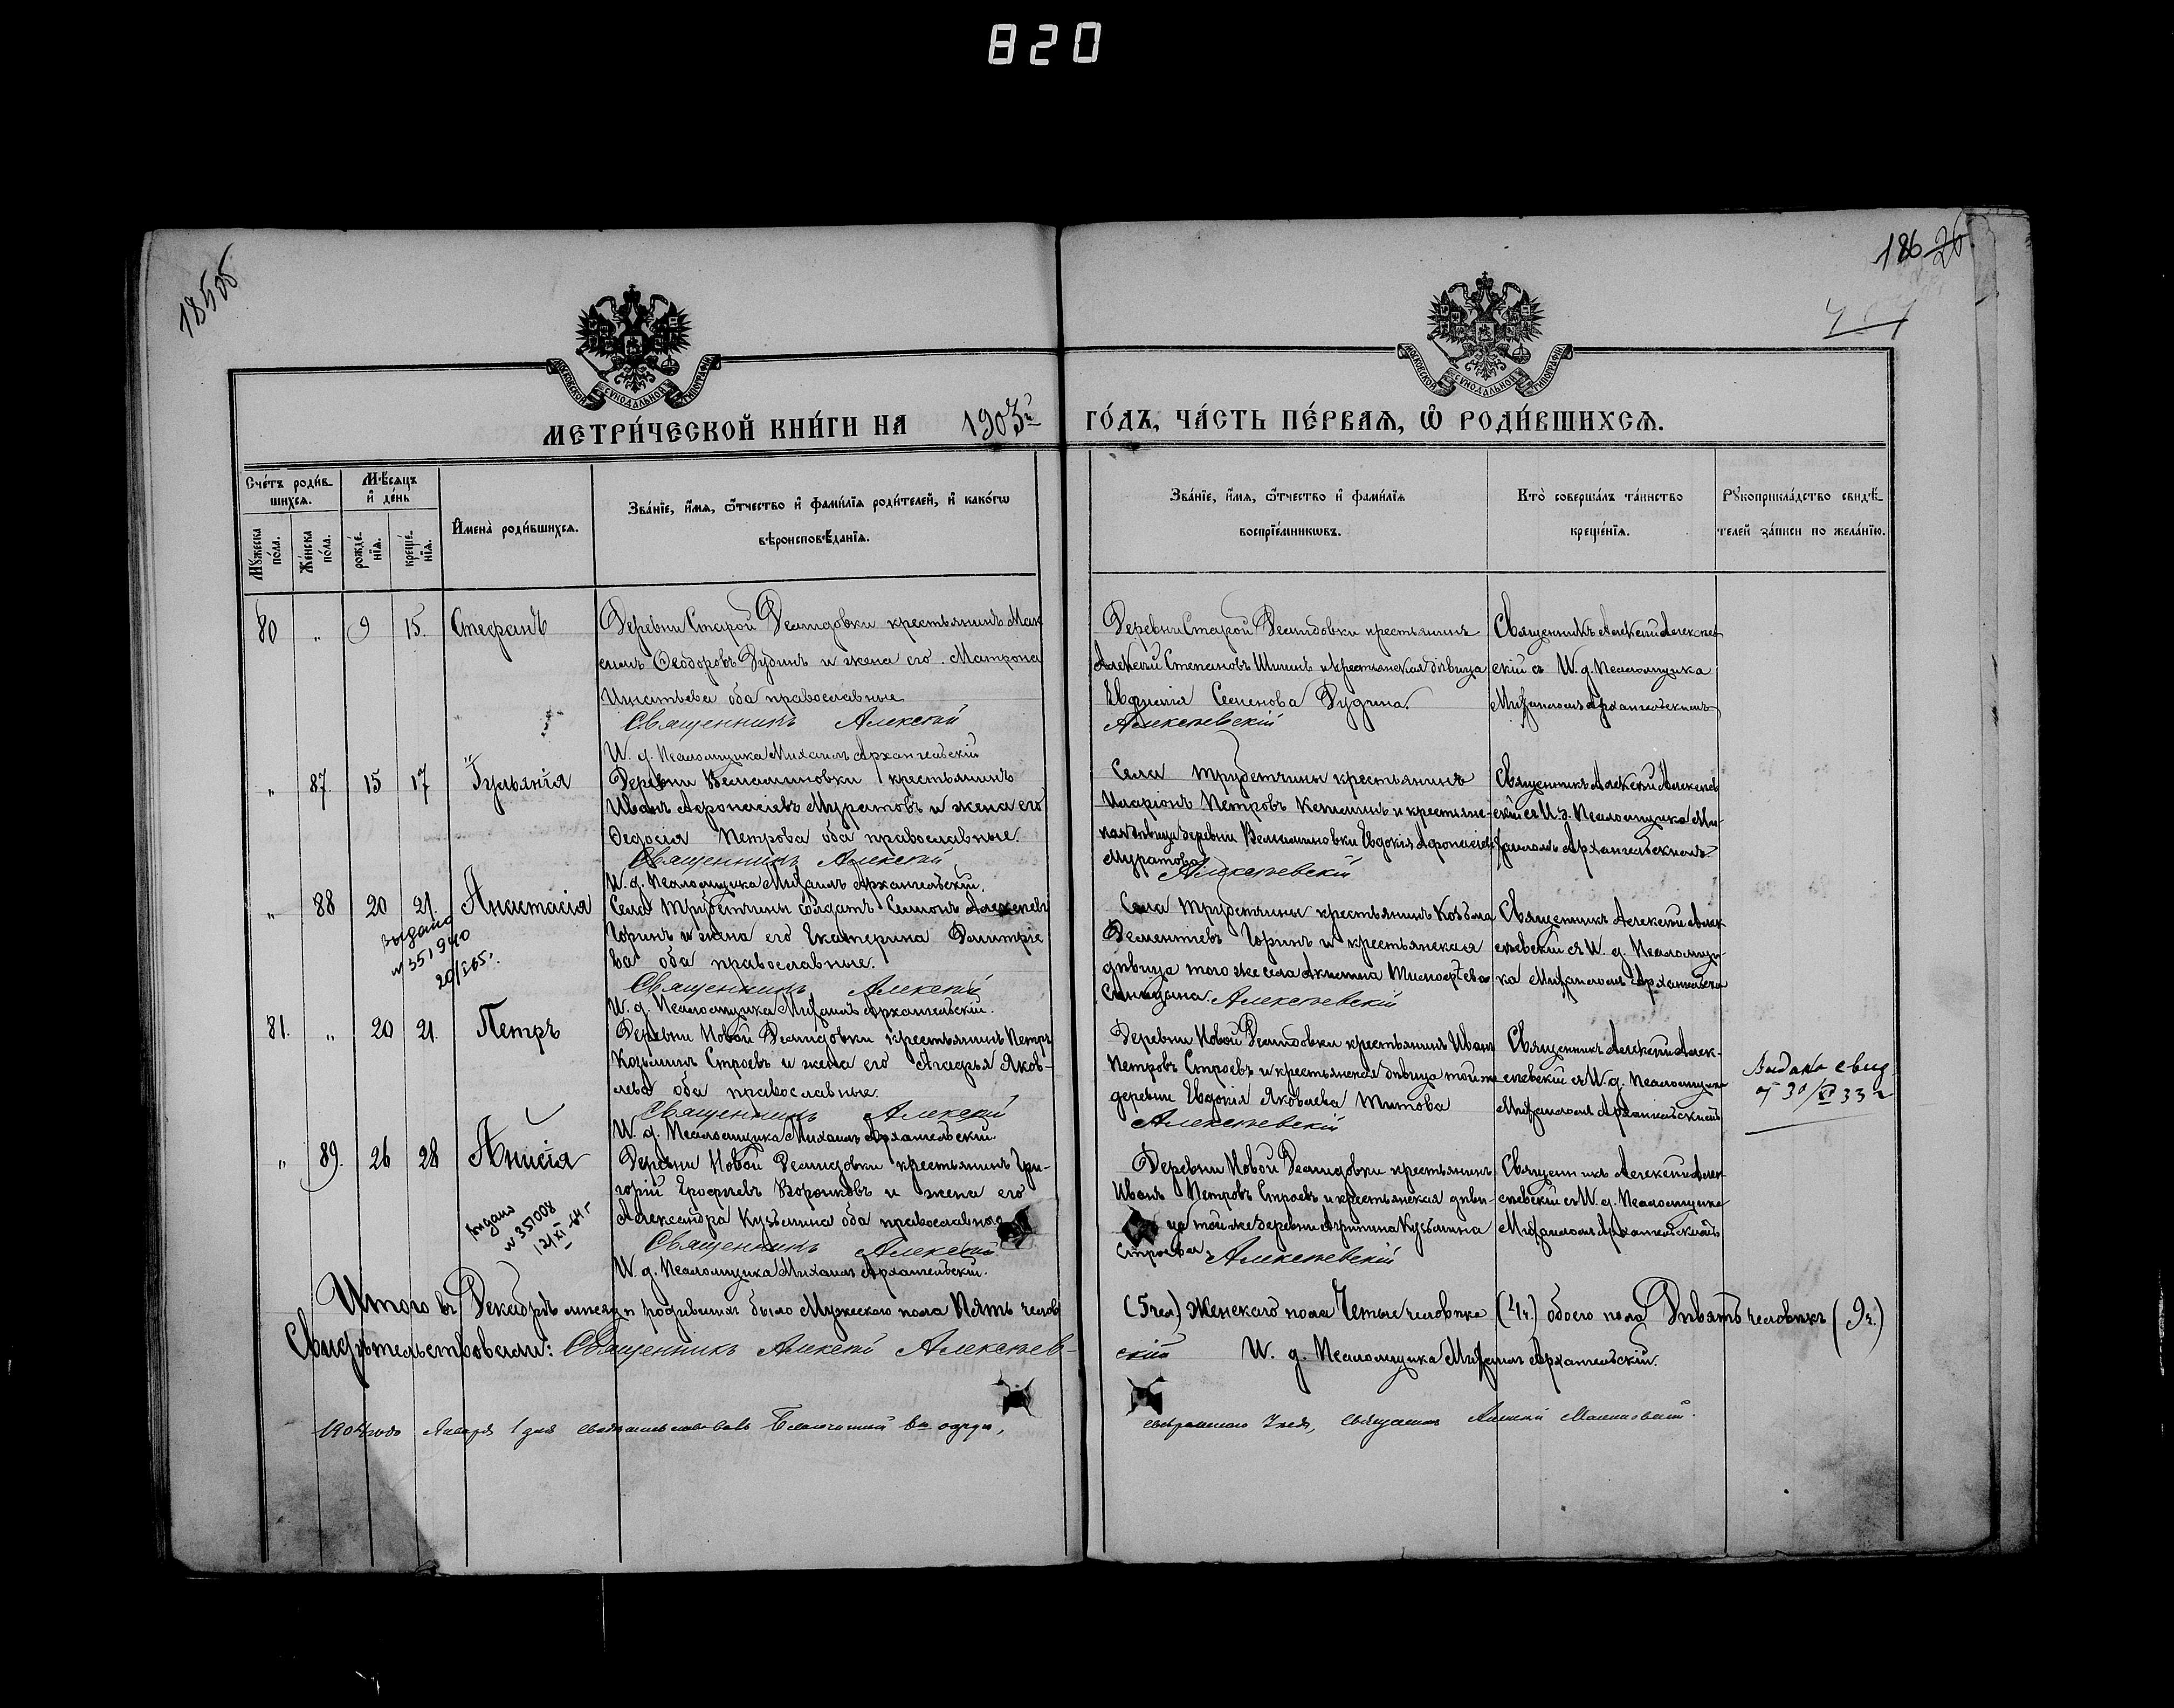 820
185об
186 26
МОСКОВСКОЙ СѴНОДАЛЬНОЙ ТИПОГРАФІИ
МОСКОВСКОЙ СѴНОДАЛЬНОЙ ТИПОГРАФІИ
МЕТРИ́ЧЕСКОЙ КНИ́ГИ НА 1903й ГО́ДЪ, ЧА́СТЬ ПЕ́РВАѦ, Ѡ РОДИ́ВШИХСѦ.
Счétъ роди́вшихсѧ.
Мꙋжеска по́ла.
Же́нска по́ла.
Мѣ́сяцъ и҆ де́нь
рожде́нїѧ.
креще́нїѧ.
И҆мена̀ роди́вшихсѧ.
Зва́нїе, и҆́мѧ, ѻ҆́тчество и҆ фами́лїѧ роди́телей, и҆ како́гѡ
вѣроисповѣ́данїѧ.
Зва́нїе, и҆́мѧ, ѻ҆́тчество и҆ фами́лїѧ
воспрїе́мникѡвъ.
Кто̀ соверша́лъ та́инство
креще́нїѧ.
Рꙋкоприкла́дство свидѣ́-
телей за́писи по жела́нїю.
80 " 9 15. Стефанъ
Деревни Старой Демидовки крестьянинъ Мак
симъ Ѳеодоровъ Зудинъ и жена его Матрона
Игнатьева оба православные
Священникъ Алексѣй
И. д. Псаломщика Михаилъ Архангельскій
Деревни Старой Демидовки крестьянинъ
Алексей Степановъ Шишинъ и крестьянская дѣвица
Евфимія Семенова Зудина.
Алексѣевскій
Священникъ Алексѣй Алексѣев
скій съ И. д. Псаломщика
Михаиломъ Архангельскимъ
" 87. 15 17 Іуліанія
Деревни Вельяминовки крестьянинъ
Иванъ Афонасіевъ Муратовъ и жена его
Ѳедосія Петрова оба православные.
Священникъ Алексѣй
И. д. Псаломщика Михаилъ Архангельскій.
Села Трубетчины крестьянинъ
Иларіонъ Петровъ и крестьянс-
кая дѣвица деревни Вельяминовки Евдокія Афонасіева
Муратова
Алексѣевскій
Священникъ Алексѣй Алексѣев
скій съ И. д. Псаломщика Ми-
хаиломъ Архангельскимъ.
" 88 20 21. Анастасія
выдано
№ 351940
Села Трубетчины солдатъ Симонъ Алексѣевъ
Горинъ и жена его Екатерина Димитріе
ва оба православные.
Священникъ Алексѣй
И. д. Псаломщика Михаилъ Архангельскій.
Села Трубетчины крестьянинъ Козьма
Дементіевъ Горинъ и крестьянская
дѣвица того же села Акилина Тимоѳеева
Синицина. Алексѣевскій
Священникъ Алексѣй Алек
сѣевскій съ И. д. Псаломщи-
ка Михаиломъ Архангельски
81. " 20 21. Петръ
Деревни Новой Демидовки крестьянинъ Петръ
Козьминъ Строевъ и жена его Агафья Яков-
лева оба православные.
Священникъ Алексѣй
И. д. Псаломщика Михаилъ Архангельскій.
Деревни Новой Демидовки крестьянинъ Иванъ
Петровъ Строевъ и крестьянская дѣвица той же
деревни Евдокія Яковлева Титова
Алексѣевскій
Священникъ Алексѣй Алек-
сѣевскій съ И. д. Псаломщика
Михаиломъ Архангельскимъ
Выдано свид
от 30/XI 33 г
" 89. 26 28 Анисія
выдано
№ 351008
Деревни Новой Демидовки крестьянинъ Гри-
горій Ерофіевъ Воронковъ и жена его
Александра Кузьмина оба православные
Священникъ Алексѣй
И. д. Псаломщика Михаилъ Архангельскій.
Деревни Новой Демидовки крестьянинъ
Иванъ Петровъ Строевъ и крестьянская дѣви-
ца той же деревни Кузьмина
Строева. Алексѣевскій
Священникъ Алексѣй Алек
сѣевскій съ И. д. Псаломщика
Михаиломъ Архангельскимъ
Итого въ Декабрѣ мѣсяцѣ родившихся было Мужескаго пола Пять челов (5 чел) Женскаго пола Четыре человѣка (4 ч.) обоего пола Дѣвять человѣкъ (9 ч.)
Свидѣтельствовали: Священникъ Алексѣй Алексѣев-
скій И. д. Псаломщика Михаилъ Архангельскій.
1904 года Января 1 дня свидѣтельствовалъ Благочинный священникъ Алексѣй